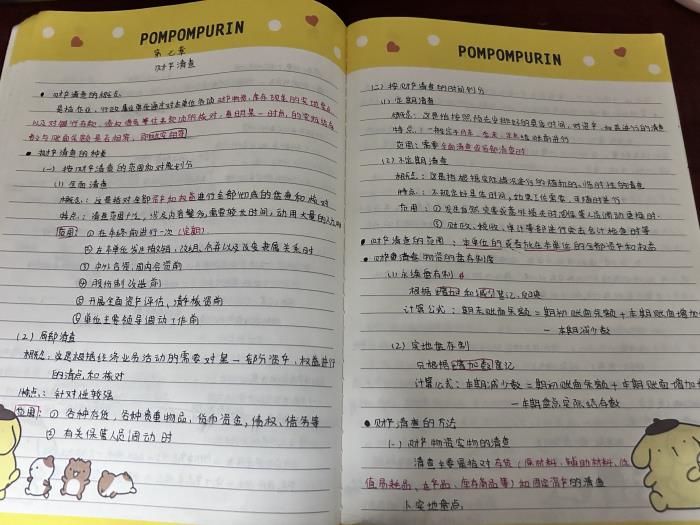 POMPOMPURIN
第七章
财产清查
• 财产清查的概念
是指企业、行政事业单位通过对本单位各项财产物资、库存现金的实地盘点
以及对银行存款、债权债务等往来款项的核对，查明某一时点的实际结存
数与账面余额是否相符，即账实相符
• 财产清查的种类
(一) 按财产清查的范围和对象划分
(1) 全面清查
概念：这是指对全部资产和权益进行全部彻底的盘查和核对
特点：清查范围广泛，涉及内容繁多，需要较长时间，动用大量的人力
范围：① 在年终前进行一次 (定期)
② 在本单位发生撤销、改组、合并以及改变隶属关系时
③ 中外合资、国内合资前
④ 股份制改造前
⑤ 开展全面资产评估、清产核资前
⑥ 单位主要领导调动工作前
(2) 局部清查
概念：这是根据经济业务活动的需要对某一部分资产、权益进行
的清点和核对
特点：针对性较强
范围：① 各种存货、各种贵重物品、货币资金、债权、债务等
② 有关保管人员调动时
POMPOMPURIN
(二) 按财产清查的时间划分
(1) 定期清查
概念：这是指按照预先安排好的具体时间，对资产、权益进行的清查
特点：一般在于月末、季末、年末结账前进行
范围：需要全面清查或局部清查时
(2) 不定期清查
概念：这是根据实际情况进行的随机的、临时性的清查
特点：不规定好具体时间，如果工作需要，可随时进行
范围：① 发生自然灾害或意外损失时或保管人员调动更换时
② 财政、税收、审计等部门突击会计检查时
• 财产清查的范围：本单位的或者放在本单位的全部资产和权益
• 财产物资的盘存制度
(1) 永续盘存制
根据增加和减少登记、反映
计算公式：期末账面余额 = 期初账面余额 + 本期账面增加
— 本期减少数
(2) 实地盘存制
只根据增加数登记
计算公式：本期减少数 = 期初账面余额 + 本期账面增加
— 本期盘点实际结存数
• 财产清查的方法
(一) 财产物资实物的清查
清查主要是指对存货（原材料、辅助材料、低
值易耗品、在产品、库存商品等）和固定资产的清查
1. 实地盘点